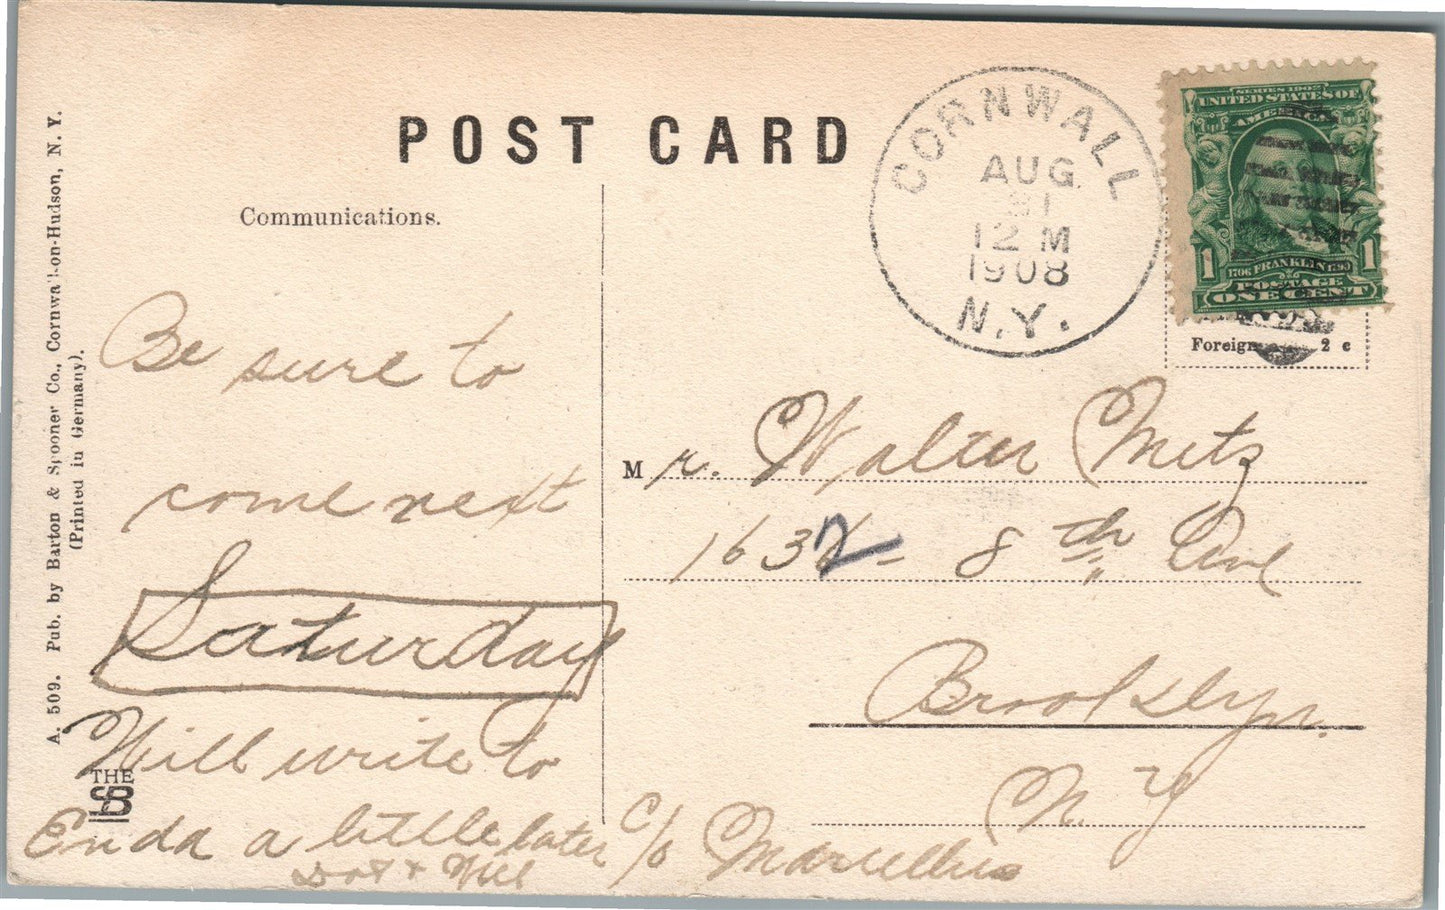 POST CARD
Communications.
A. 509. Pub. by Barton & Spooner Co., Cornwall-on-Hudson, N. Y.
(Printed in Germany).
THE
SB
CORNWALL
AUG
31
12 M
1908
N.Y.
SERIES 1902
UNITED STATES OF
AMERICA
1 1
1706 FRANKLIN 1790
POSTAGE
ONE CENT
Foreign 2 c
Be sure to
come next
Saturday
Will write to
Enda a little later
Dot + Will
Mr. Walter Metz
1632 - 8th Ave
Brooklyn.
N. Y
c/o Marcellus